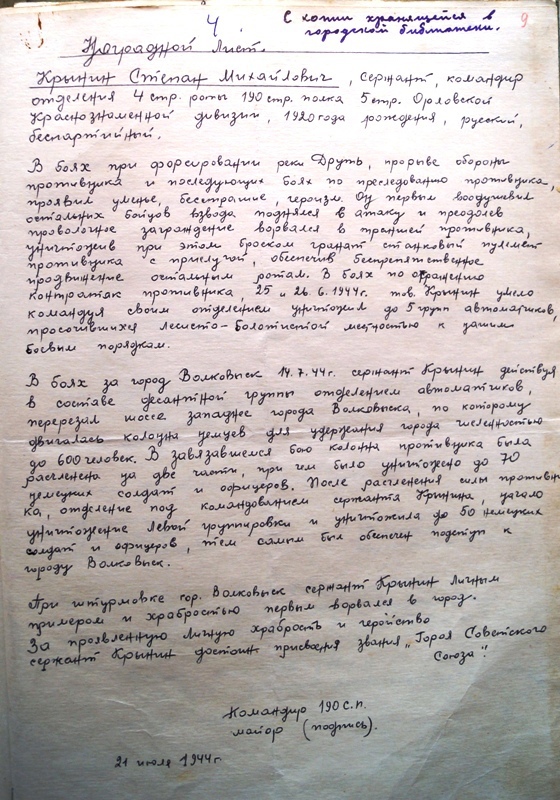 4
С копии хранящейся в
городской библиотеки.
9
Наградной Лист.
Крынин Степан Михайлович, сержант, командир
отделения 4 стр. роты 190 стр. полка 5 стр. Орловской
Краснознаменной дивизии, 1920 года рождения, русский,
беспартийный.
В боях при форсировании реки Друть, прорыве обороны
противника и последующих боях по преследованию противника,
проявил уменье, бесстрашие, героизм. Он первым воодушевил
остальных бойцов взвода поднялся в атаку и преодолев
проволочное заграждение ворвался в траншеи противника,
уничтожив при этом броском гранат станковый пулемет
противника с прислугой, обеспечив беспрепятственное
продвижение остальным ротам. В боях по отражению
контратак противника, 25 и 26.6.1944г. тов. Крынин умело
командуя своим отделением уничтожил до 5 групп автоматчиков,
просочившихся лесисто-болотистой местностью к нашим
боевым порядкам.
В боях за город Волковыск 14.7.44г. сержант Крынин действуя
в составе десантной группы отделением автоматчиков,
перерезал шоссе западнее города Волковыска, по которому
двигалась колонна немцев для удержания города численностью
до 600 человек. В завязавшемся бою колонна противника была
расчленена на две части, при чем было уничтожено до 70
немецких солдат и офицеров. После расчленения силы противни
ка, отделение под командованием сержанта Крынина, начало
уничтожение левой группировки и уничтожила до 50 немецких
солдат и офицеров, тем самым был обеспечен подступ к
городу Волковыск.
При штурмовке гор. Волковыск сержант Крынин личным
примером и храбростью первым ворвался в город.
За проявленную личную храбрость и геройство
сержант Крынин достоин присвоения звания „Героя Советского
Союза".
Командир 190 с.п.
майор (подпись).
21 июля 1944г